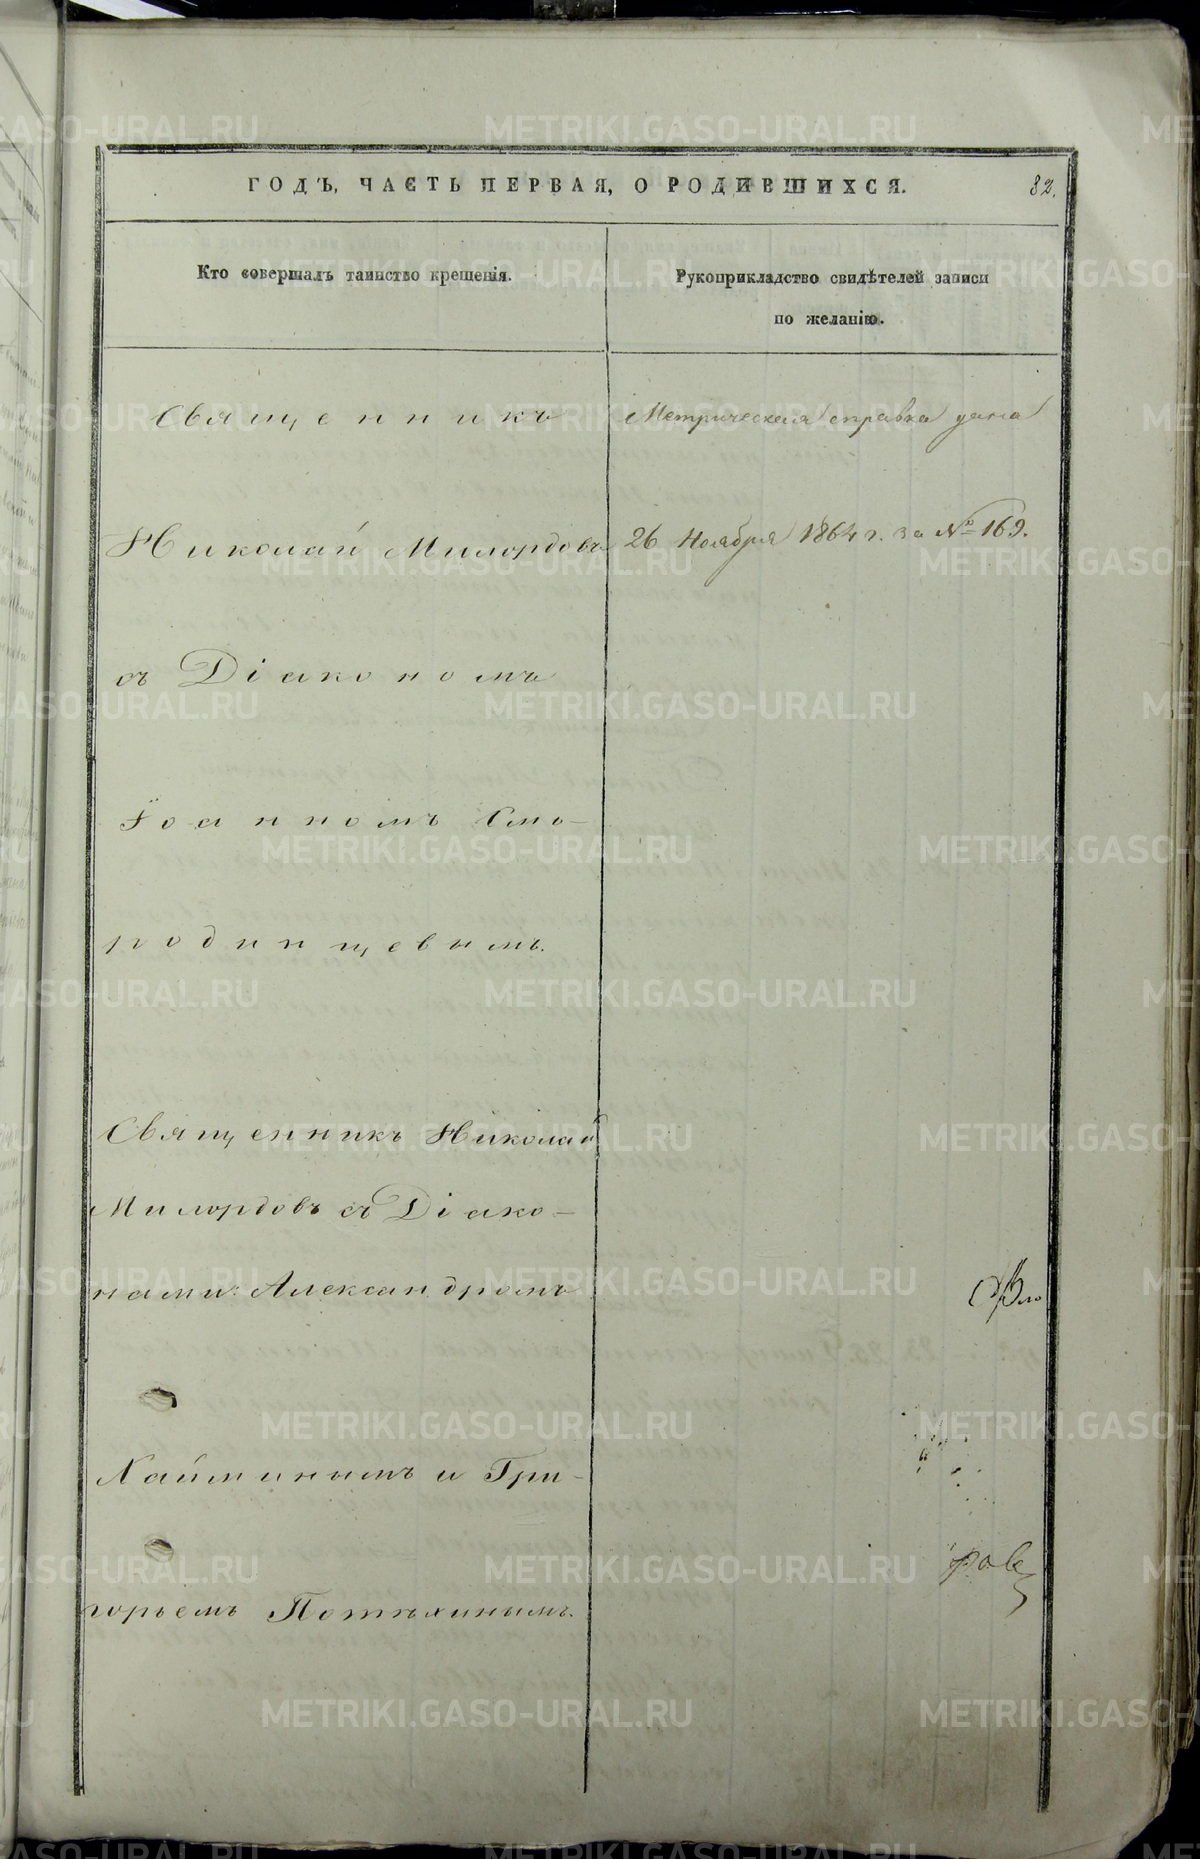 ГОДЪ, ЧАСТЬ ПЕРВАЯ, О РОДИВШИХСЯ.
82.
Кто совершалъ таинство крещенія.
Рукоприкладство свидѣтелей записи
по желанію.
Священникъ
Николай Милордовъ
съ Діакономъ
Іоанномъ Смо-
родинцевымъ.
Метрическая справка дана
26 Ноября 1864 г. за № 169.
Священникъ Николай
Милордовъ съ Діако-
нами: Александромъ
Хайминымъ и Гри-
горьемъ Потѣхинымъ.
ров
METRIKI.GASO-URAL.RU